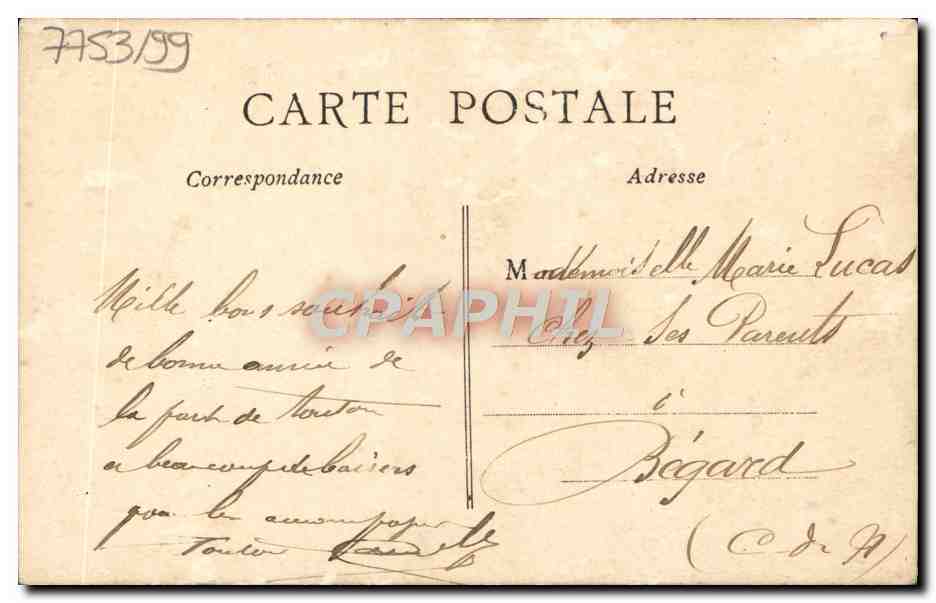 7753/99
CARTE POSTALE
Correspondance
Adresse
Mille bons souhaits
de bonne année de
la part de tonton
et beaucoup de baisers
pour les accompagner
Tonton
Mademoiselle Marie Lucas
Chez Ses Parents
à
Bégard
(C-du-N)
CPAPHIL